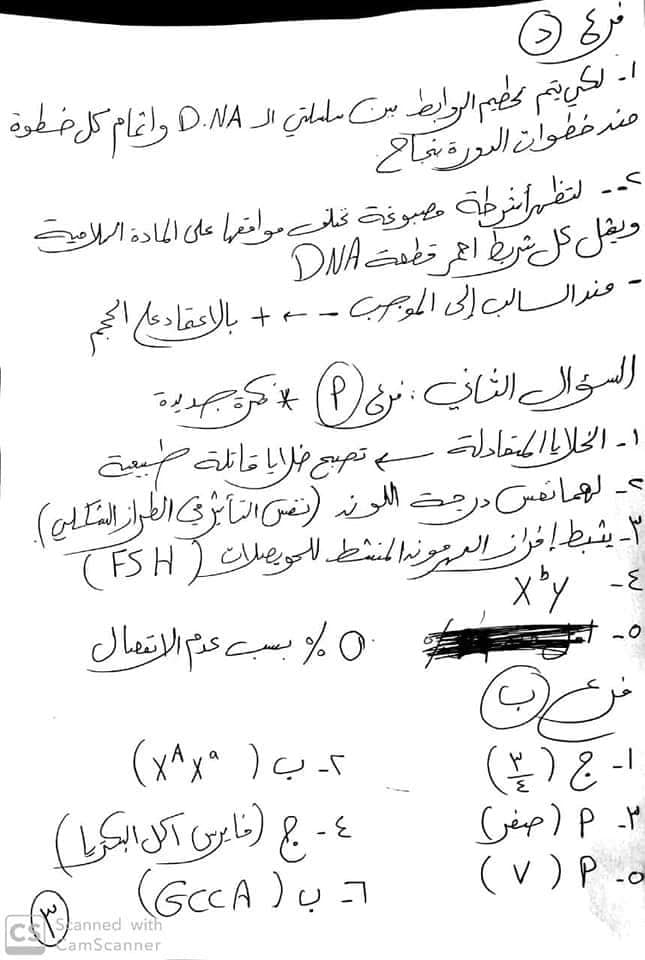 فرع د
١- لكي يتم تحطيم الروابط بين سلسلتي الـ D.NA واتمام كل خطوة
من خطوات الدورة بنجاح
٢- لتظهر أشرطة مصبوغة تختلف مواقعها على المادة الهلامية
ويمثل كل شريط احمر قطعة DNA
- من السالب إلى الموجب - ← + بالاعتماد على الحجم
السؤال الثاني : فرع أ * فكرة جديدة
١- الخلايا المتعادلة ← تصبح خلايا قاتلة طبيعية
٢- لهما نفس درجة اللون (نفس التأثير في الطراز الشكلي)
٣- يثبط إفراز الهرمون المنشط للحويصلات (FSH)
٤- XᵇY
٥- 0 % بسبب عدم الانفصال
فرع ب
١- ج (٣/٤) ٢- ب (XᴬXᵃ)
٣- أ (صفر) ٤- ج (فايرس آكل البكتريا)
٥- أ (٧) ٦- ب (GCCA)
٣
CS Scanned with
CamScanner